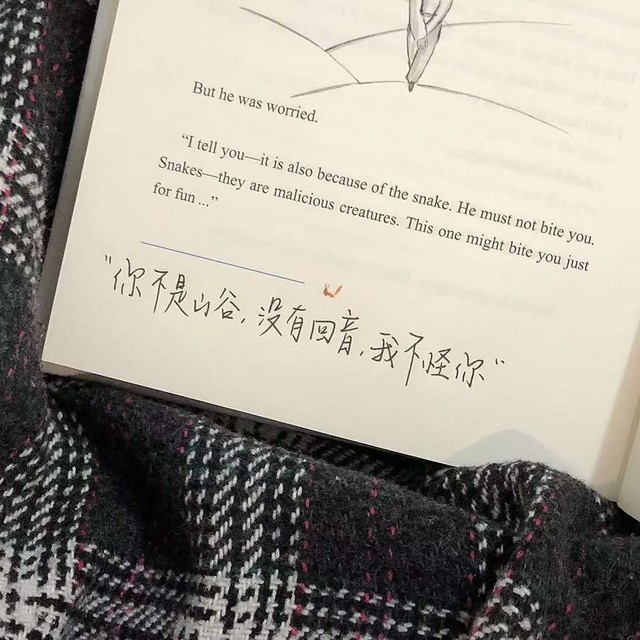 But he was worried.
“I tell you—it is also because of the snake. He must not bite you.
Snakes—they are malicious creatures. This one might bite you just
for fun ...”
“你不是山谷,没有回音,我不怪你”